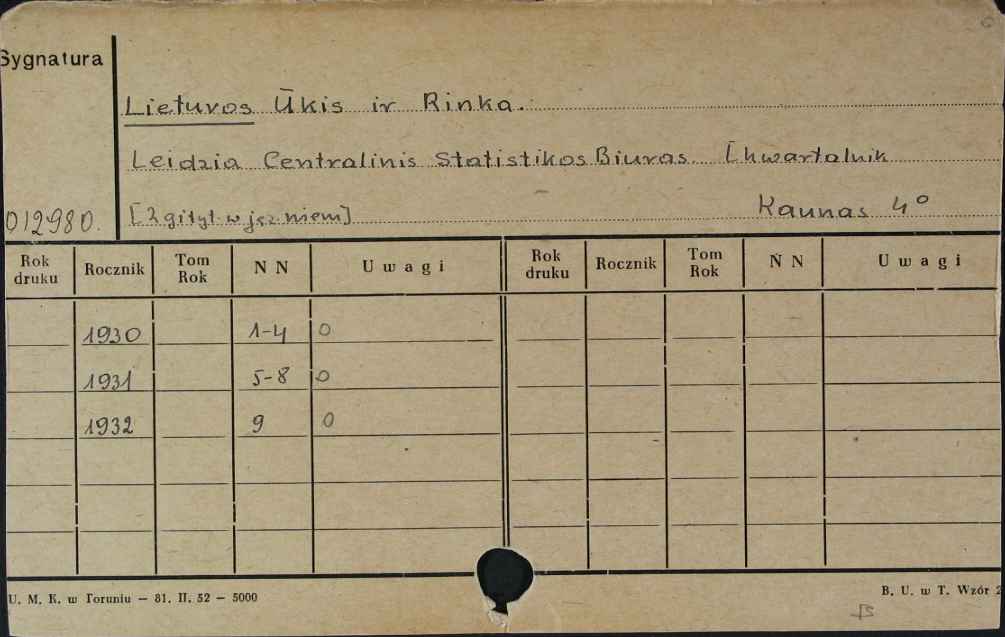 Sygnatura
Lietuvos Ūkis ir Rinka.
Leidzia Centralinis Statistikos Biuras [kwartalnik
012980. [2 gi tyt. w jęz. niem] Kaunas 4º
Rok druku Rocznik Tom Rok N N Uwagi Rok druku Rocznik Tom Rok N N Uwagi
1930 1-4 0
1931 5-8 0
1932 9 0
U. M. K. w Toruniu — 81. II. 52 — 5000 B. U. w T. Wzór 2